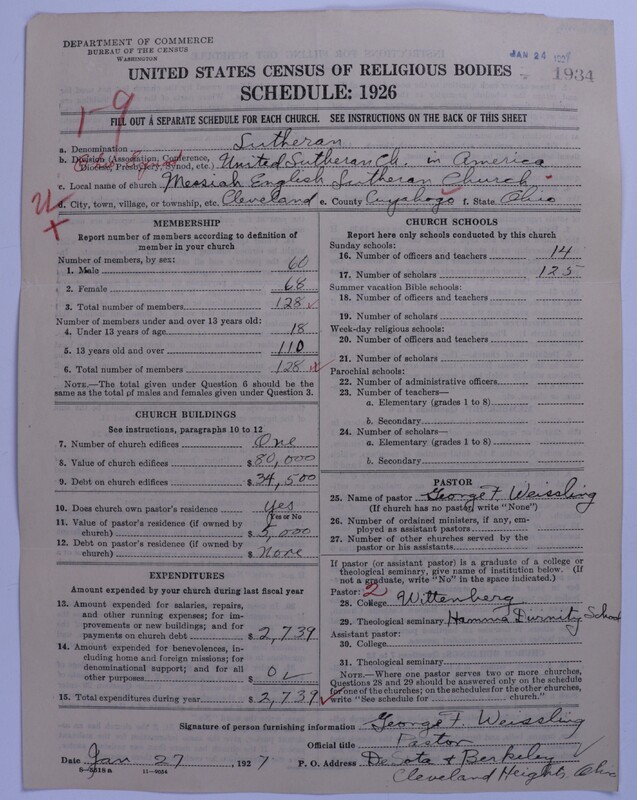 DEPARTMENT OF COMMERCE
BUREAU OF THE CENSUS
WASHINGTON
JAN 24 1927
1934
UNITED STATES CENSUS OF RELIGIOUS BODIES
SCHEDULE: 1926
1-9
FILL OUT A SEPARATE SCHEDULE FOR EACH CHURCH. SEE INSTRUCTIONS ON THE BACK OF THIS SHEET
a. Denomination Lutheran
b. Division (Association, Conference, Diocese, Presbytery, Synod, etc.) United Lutheran Ch. in America
Ohio Synod
c. Local name of church Messiah English Lutheran Church
d. City, town, village, or township, etc. Cleveland e. County Cuyahoga f. State Ohio
MEMBERSHIP
Report number of members according to definition of member in your church
Number of members, by sex:
1. Male 60
2. Female 68
3. Total number of members 128
Number of members under and over 13 years old:
4. Under 13 years of age 18
5. 13 years old and over 110
6. Total number of members 128
NOTE.—The total given under Question 6 should be the same as the total of males and females given under Question 3.
CHURCH BUILDINGS
See instructions, paragraphs 10 to 12
7. Number of church edifices One
8. Value of church edifices $80,000
9. Debt on church edifices $34,500
10. Does church own pastor's residence Yes
Yes or No
11. Value of pastor's residence (if owned by church) $5,000
12. Debt on pastor's residence (if owned by church) $None
EXPENDITURES
Amount expended by your church during last fiscal year
13. Amount expended for salaries, repairs, and other running expenses; for improvements or new buildings; and for payments on church debt $2,739
14. Amount expended for benevolences, including home and foreign missions; for denominational support; and for all other purposes $0
15. Total expenditures during year $2,739
CHURCH SCHOOLS
Report here only schools conducted by this church
Sunday schools:
16. Number of officers and teachers 14
17. Number of scholars 125
Summer vacation Bible schools:
18. Number of officers and teachers
19. Number of scholars
Week-day religious schools:
20. Number of officers and teachers
21. Number of scholars
Parochial schools:
22. Number of administrative officers
23. Number of teachers—
a. Elementary (grades 1 to 8)
b. Secondary
24. Number of scholars—
a. Elementary (grades 1 to 8)
b. Secondary
PASTOR
25. Name of pastor George F. Weissling
(If church has no pastor, write "None")
26. Number of ordained ministers, if any, employed as assistant pastors
27. Number of other churches served by the pastor or his assistants
If pastor (or assistant pastor) is a graduate of a college or theological seminary, give name of institution below. (If not a graduate, write "No" in the space indicated.)
Pastor: 2
28. College Wittenberg
29. Theological seminary Hamma Divinity School
Assistant pastor:
30. College
31. Theological seminary
NOTE.—Where one pastor serves two or more churches, Questions 28 and 29 should be answered only on the schedule for one of the churches; on the schedules for the other churches, write "See schedule for church."
Signature of person furnishing information George F. Weissling
Official title Pastor
Date Jan 27, 1927 P. O. Address DeSota & Berkeley
Cleveland Heights, Ohio
11-9034